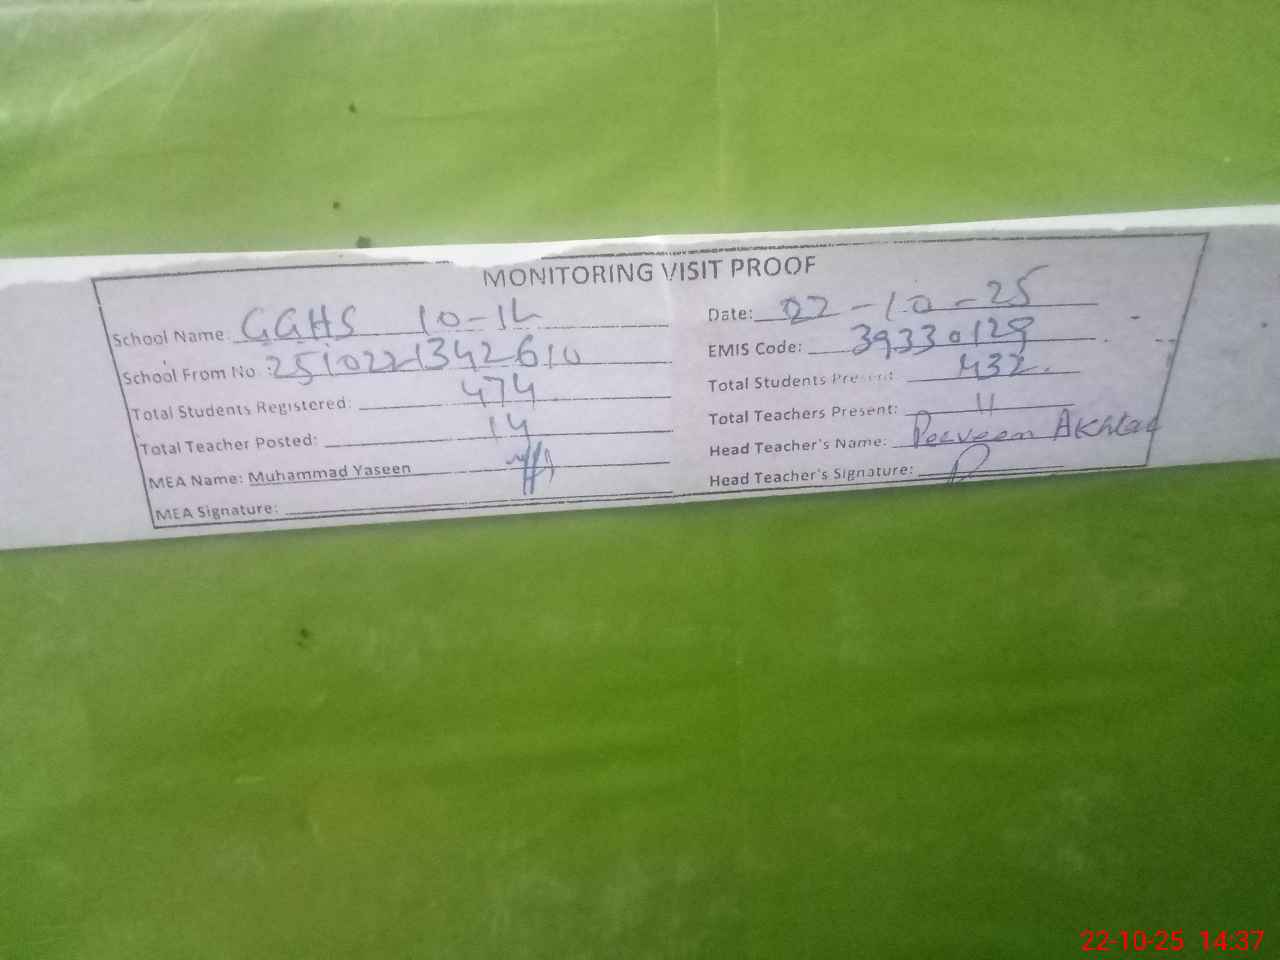 MONITORING VISIT PROOF
School Name: GGHS 10-1L
Date: 22-10-25
School From No: 2510221342610
EMIS Code: 39330129
Total Students Registered: 474
Total Students Present: 432
Total Teacher Posted: 14
Total Teachers Present: 11
MEA Name: Muhammad Yaseen
Head Teacher's Name: Perveen Akhtar
MEA Signature:
Head Teacher's Signature:
22-10-25 14:37